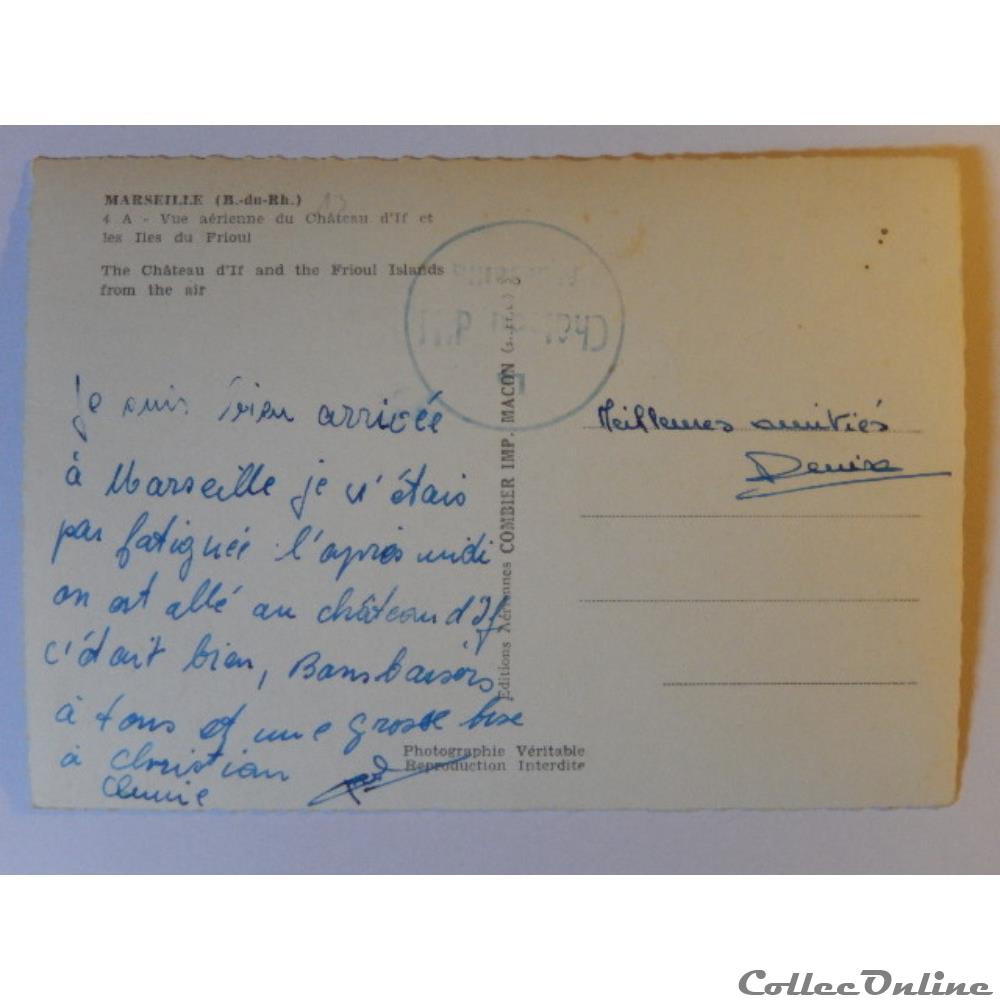 MARSEILLE (B.-du-Rh.)
4 A - Vue aérienne du Château d'If et
les Iles du Frioul
The Château d'If and the Frioul Islands
from the air
Château d'If
Je suis bien arrivée
à Marseille je n'étais
pas fatiguée l'après midi
on est allé au château d'If
c'était bien, Bons baisers
à tous et une grosse bise
à Christian
Editions Aériennes COMBIER IMP. MACON
Meilleures amitiés
Denise
Photographie Véritable
Reproduction Interdite
CollecOnline